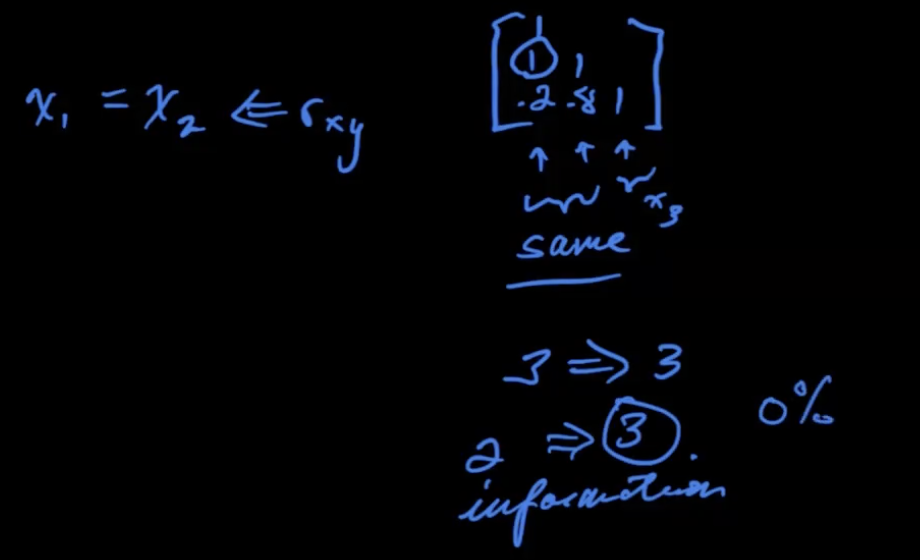 x₁ = x₂ ⇐ r_xy
1
1 1
.2 .8 1
↑ ↑ ↑
x₃
same
3 ⇒ 3
0%
2 ⇒ 3.
information